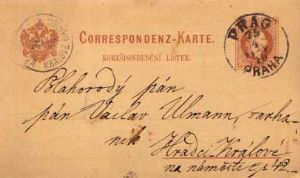 CORRESPONDENZ-KARTE.
KOREŠPONDENČNÍ LÍSTEK.
PRAG
PRAHA
KRÁLOVÉ
Blahorodý pán
pán Václav Ulmann, varha-
ník
Hradci Králové
na náměstí